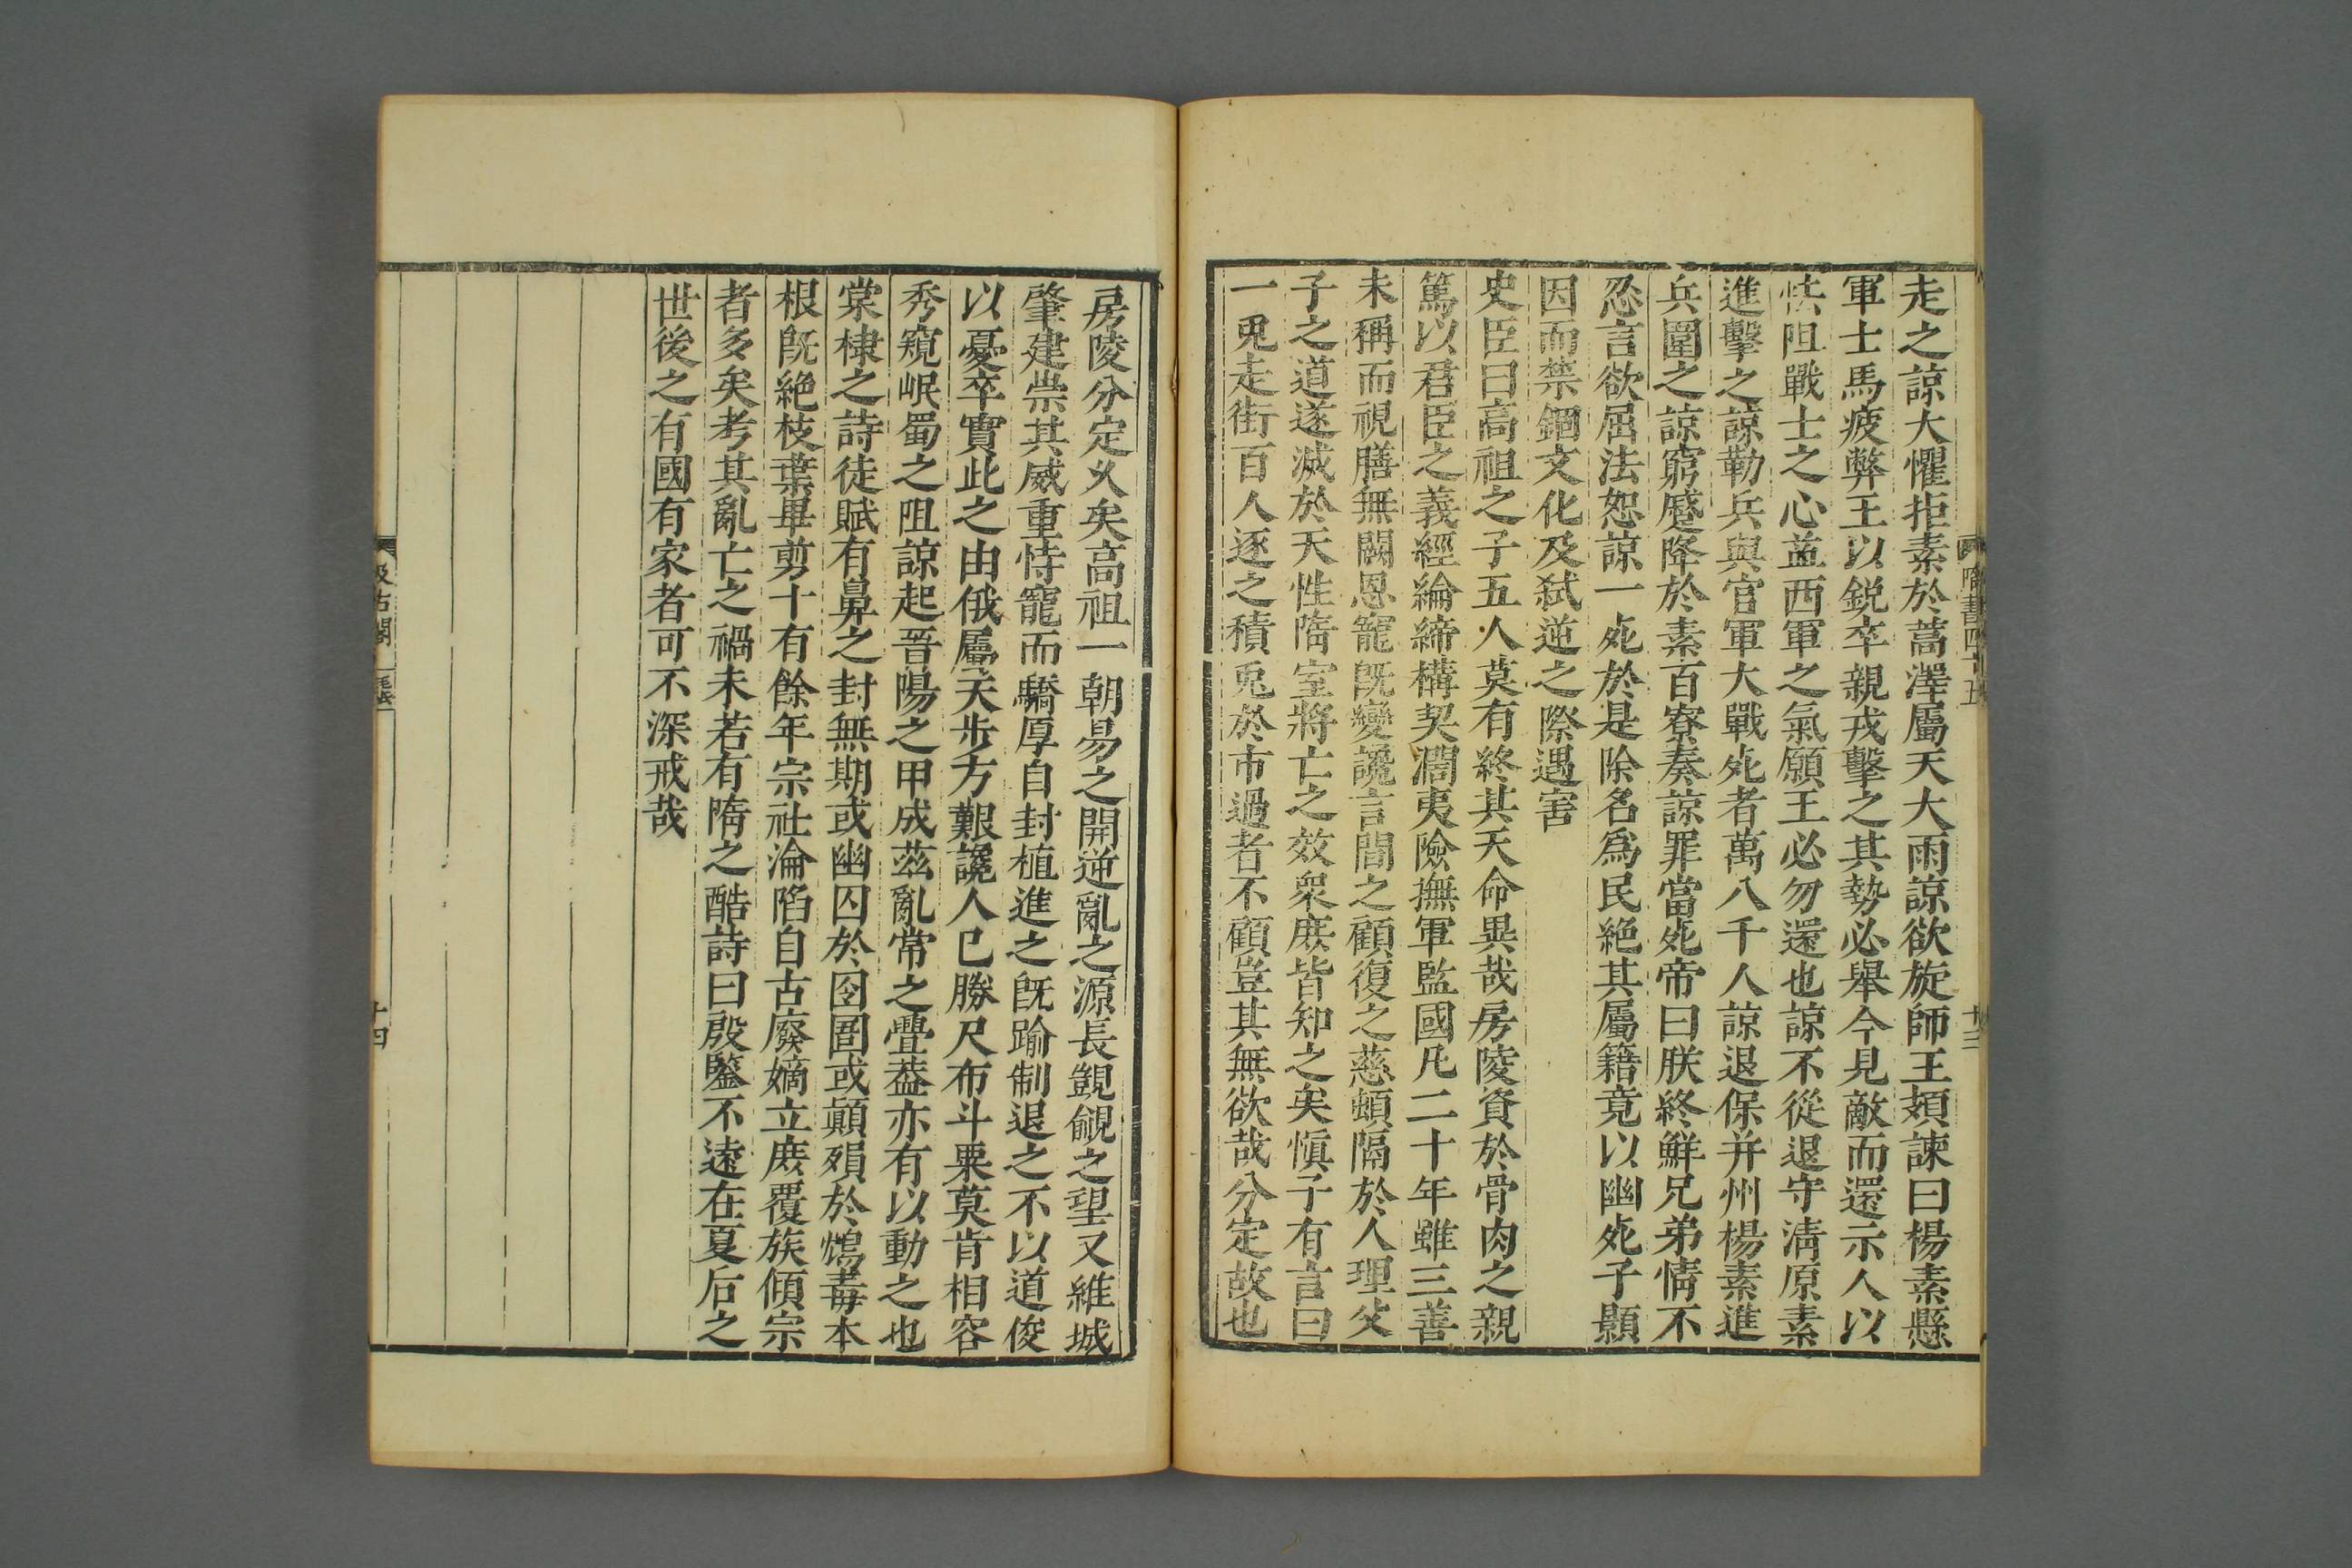 隋書四十五
十三
走之諒大懼拒素於蒿澤屬天大雨諒欲旋師王頍諫曰楊素懸
軍士馬疲弊王以銳卒親戎擊之其勢必舉今見敵而還示人以
怯阻戰士之心益西軍之氣願王必勿還也諒不從退守淸原素
進擊之諒勒兵與官軍大戰死者萬八千人諒退保并州楊素進
兵圍之諒窮蹙降於素百寮奏諒罪當死帝曰朕終鮮兄弟情不
忍言欲屈法恕諒一死於是除名爲民絶其屬籍竟以幽死子顥
因而禁錮文化及弑逆之際遇害
史臣曰高祖之子五人莫有終其天命異哉房陵資於骨肉之親
篤以君臣之義經綸締構契濶夷險撫軍監國凡二十年雖三善
未稱而視膳無闕恩寵旣變讒言間之顧復之慈頓隔於人理父
子之道遂滅於天性隋室將亡之效衆庶皆知之矣愼子有言曰
一兎走街百人逐之積兎於市過者不顧豈其無欲哉分定故也
房陵分定久矣高祖一朝易之開逆亂之源長覬覦之望又維城
肇建崇其威重恃寵而驕厚自封植進之旣踰制退之不以道俊
以憂卒實此之由俄屬天步方艱讒人已勝尺布斗粟莫肯相容
秀窺岷蜀之阻諒起晉陽之甲成茲亂常之釁葢亦有以動之也
棠棣之詩徒賦有鼻之封無期或幽囚於囹圄或顚殞於鴆毒本
根旣絶枝葉畢剪十有餘年宗社淪陷自古廢嫡立庶覆族傾宗
者多矣考其亂亡之禍未若有隋之酷詩曰殷鑒不遠在夏后之
世後之有國有家者可不深戒哉
汲古閣
十四